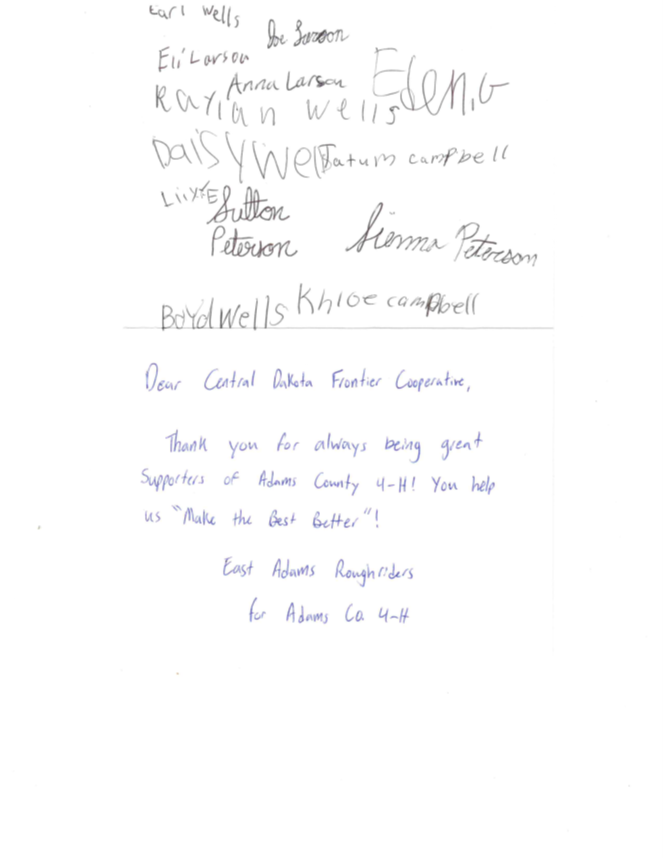 Earl Wells
Joe Larson
Eli Larson
Anna Larson
Eden.G
Raylan Wells
Daisy Well
Tatum campbell
Sutton
Peterson
Sienna Peterson
Boyd Wells
Khloe campbell
Dear Central Dakota Frontier Cooperative,
Thank you for always being great
Supporters of Adams County 4-H! You help
us "Make the Best Better"!
East Adams Roughriders
for Adams Co. 4-H